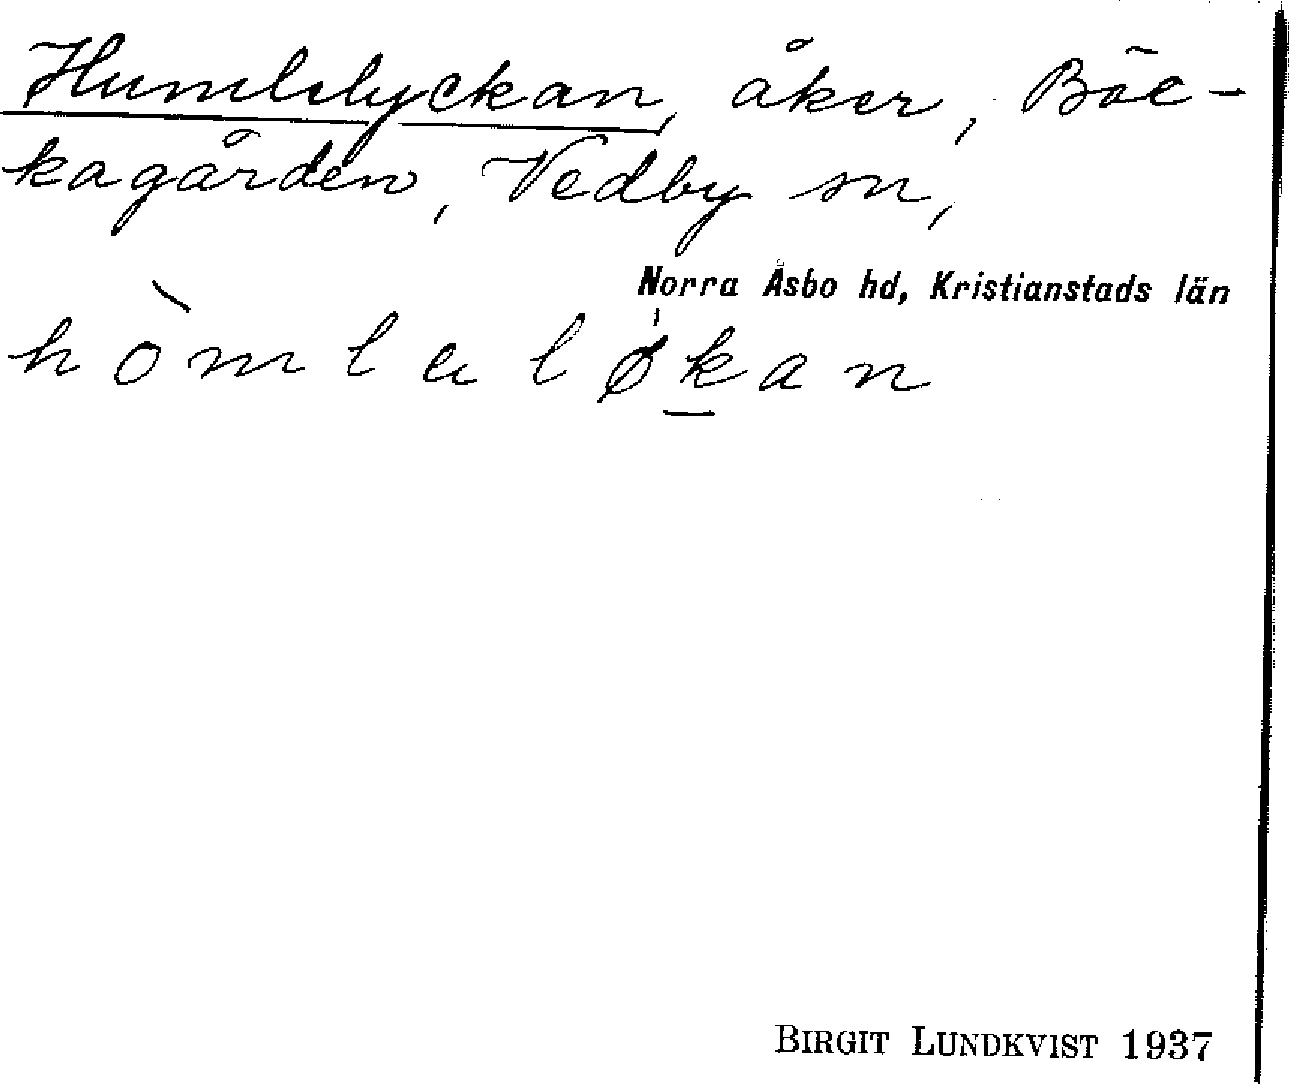 Humlelyckan, åker, Bäc-
kagården, Vedby sn,
Norra Åsbo hd, Kristianstads län
hòmlaløkan
BIRGIT LUNDKVIST 1937